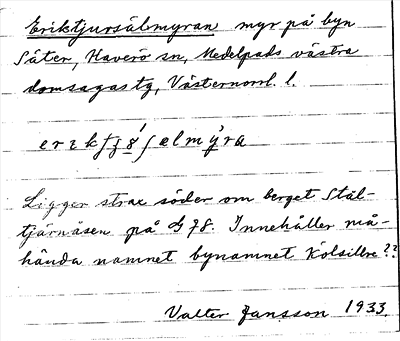 Eriktjursälmyran myr på byn
Säter, Haverö sn, Medelpads västra
domsagas tg, Västernorrl. l.
Ligger strax söder om berget Stäl-
tjärnåsen på dg 78. Innehåller må-
hända namnet bynamnet Kölsillre??
Valter Jansson 1933.